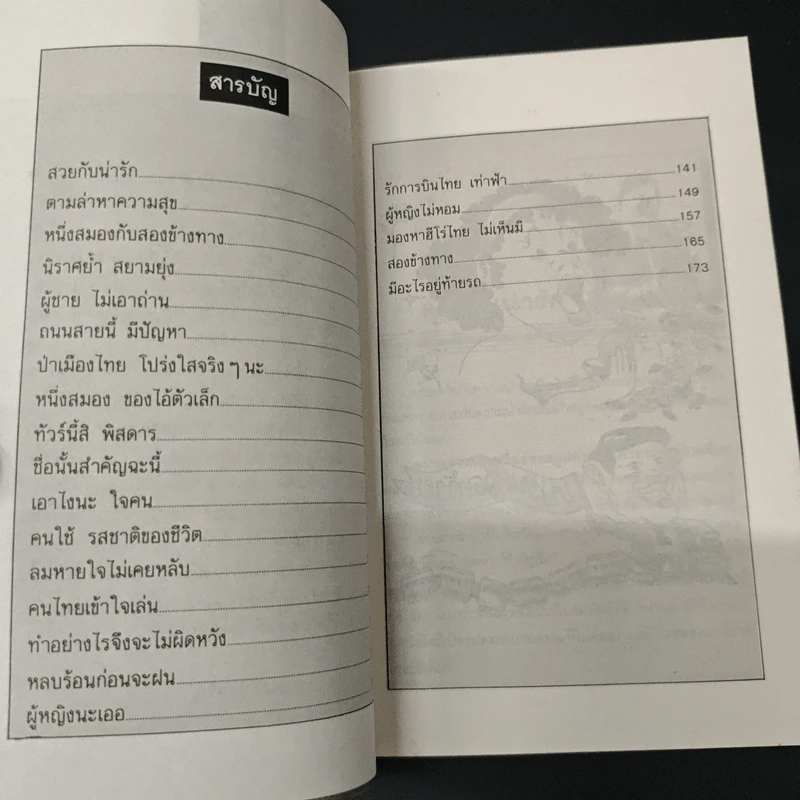 สารบัญ
สวยกับน่ารัก
ตามล่าหาความสุข
หนึ่งสมองกับสองข้างทาง
นิราศย้ำ สยามยุ่ง
ผู้ชาย ไม่เอาถ่าน
ถนนสายนี้ มีปัญหา
ป่าเมืองไทย โปร่งใสจริงๆนะ
หนึ่งสมอง ของไอ้ตัวเล็ก
ทัวร์นี้สิ พิสดาร
ชื่อนั้นสำคัญฉะนี้
เอาไงนะ ใจคน
คนใช้ รสชาติของชีวิต
ลมหายใจไม่เคยหลับ
คนไทยเข้าใจเล่น
ทำอย่างไรจึงจะไม่ผิดหวัง
หลบร้อนก่อนจะฝน
ผู้หญิงนะเออ
รักการบินไทย เท่าฟ้า 141
ผู้หญิงไม่หอม 149
มองหาฮีโร่ไทย ไม่เห็นมี 157
สองข้างทาง 165
มีอะไรอยู่ท้ายรถ 173